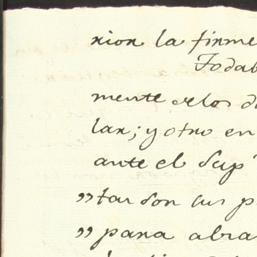 rion la firme
Todab
mente de los d
lar; y otro en
ante el Sup
"tar son sus p
"para abra